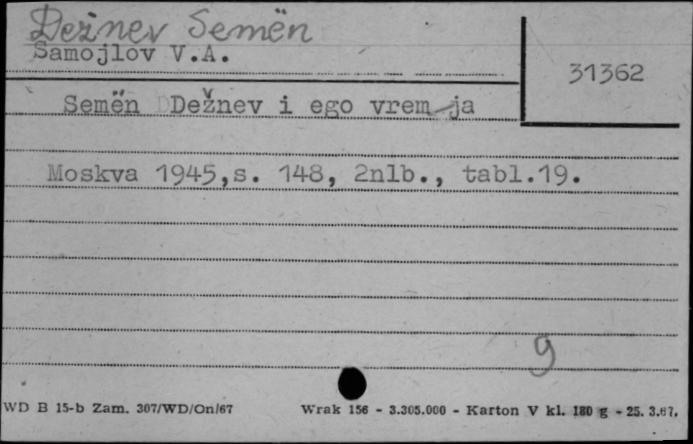 Dežnev Semën
Samojlov V.A.
31362
Semën Dežnev i ego vrem ja
Moskva 1945,s. 148, 2nlb., tabl.19.
9
WD B 15-b Zam. 307/WD/On/67 Wrak 156 - 3.305.000 - Karton V kl. 180 g - 25. 3.67.